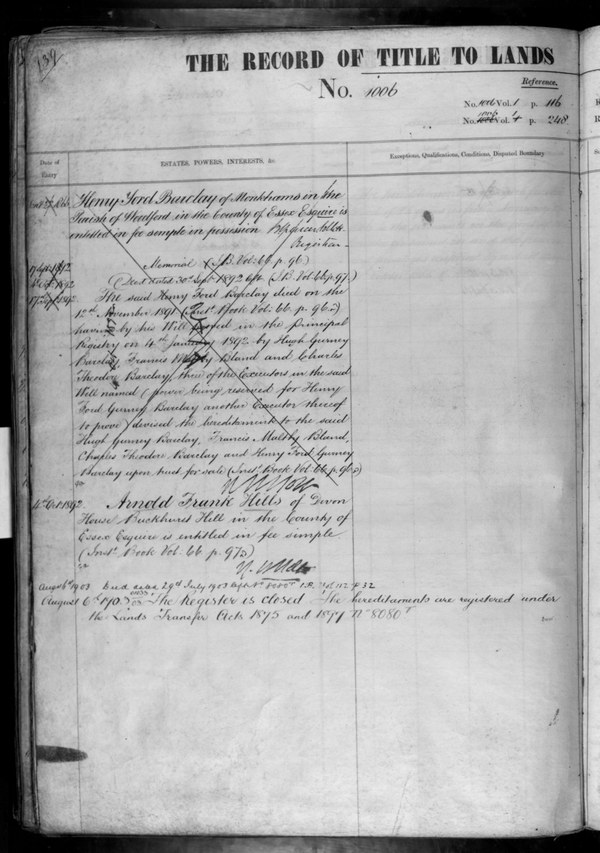 139
THE RECORD OF TITLE TO LANDS
No. 1006
Reference.
No. 1006 Vol. 1 p. 116
No. 1006 Vol. 4 p. 248
Date of Entry
ESTATES, POWERS, INTERESTS, &c.
Exceptions, Qualifications, Conditions, Disputed Boundary
Henry Ford Barclay of Monkhams in the
Parish of Woodford in the County of Essex Esquire is
entitled in fee simple in possession
Registrar
Memorial (I.B. Vol. 66 p. 96)
Deed dated 30th Sept. 1892 (I.B. Vol. 66 p. 97.)
The said Henry Ford Barclay died on the
12th November 1891 (Inst. Book Vol. 66 p. 96)
having by his Will proved in the Principal
Registry on 4th January 1892 by Hugh Gurney
Barclay, Francis Maltby Bland and Charles
Theodore Barclay, three of the Executors in the said
Will named (power being reserved for Henry
Ford Gurney Barclay another Executor thereof
to prove) devised the hereditaments to the said
Hugh Gurney Barclay, Francis Maltby Bland,
Charles Theodore Barclay and Henry Ford Gurney
Barclay upon trust for sale (Inst. Book Vol. 66 p. 96)
4th Oct 1892 Arnold Frank Hills of Devon
House Buckhurst Hill in the County of
Essex Esquire is entitled in fee simple
(Inst. Book Vol. 66 p. 97)
Augst 6th 1903 Deed dated 29th July 1903
August 6th 1903 The Register is closed The hereditaments are registered under
the Lands Transfer Acts 1875 and 1897 No 8080